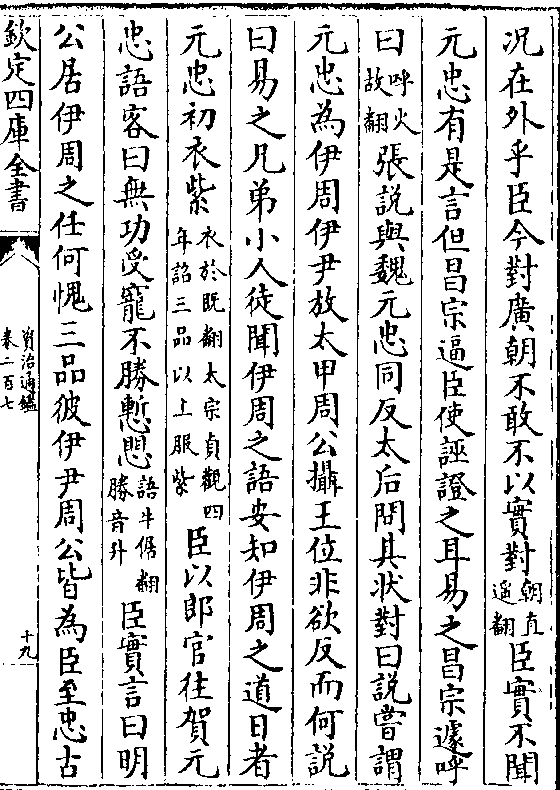 况在外乎臣今對廣朝不敢不以實對朝直遥翻臣實不聞
元忠有是言但昌宗逼臣使誣證之耳易之昌宗遽呼
曰呼火故翻張說與魏元忠同反太后問其狀對曰說嘗謂
元忠為伊周伊尹放太甲周公攝王位非欲反而何說
曰易之兄弟小人徒聞伊周之語安知伊周之道日者
元忠初衣紫衣於既翻太宗貞觀四年詔三品以上服紫臣以郎官往賀元
忠語客曰無功受寵不勝慙懼語牛倨翻勝音升臣實言曰明
公居伊周之任何愧三品彼伊尹周公皆為臣至忠古
欽定四庫全書
資治通鑑
卷二百七
十九